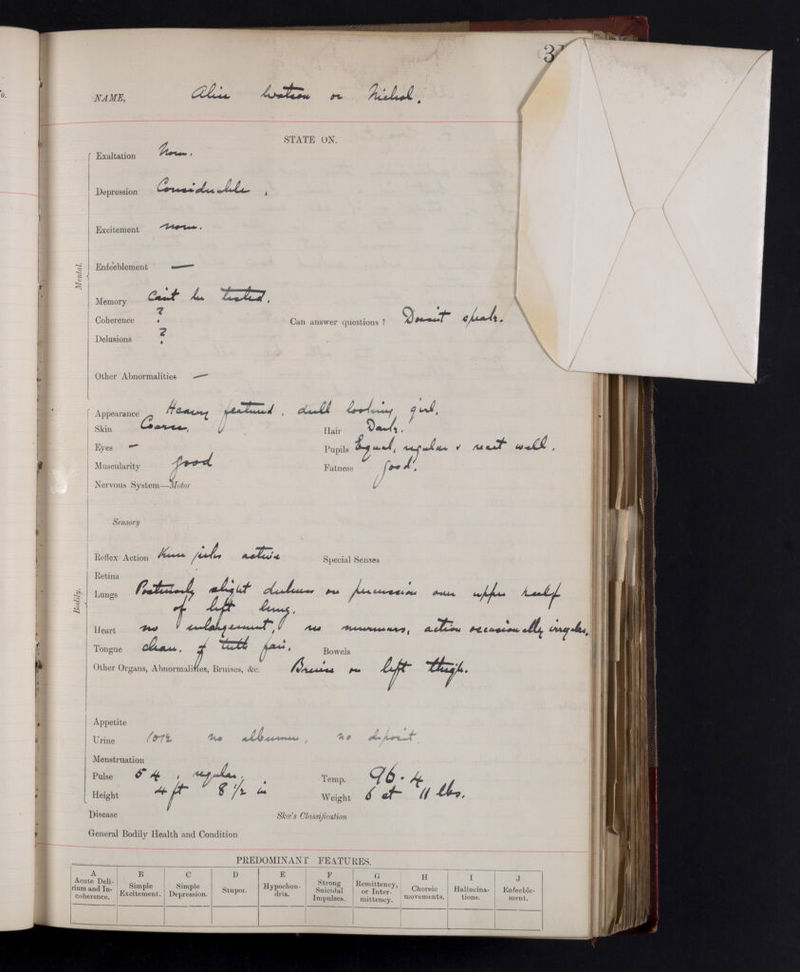 NAME, Alice Watson or Nichol.
STATE ON.
Mental.
Exaltation None.
Depression Considerable.
Excitement None.
Enfeeblement —
Memory Can't be tested.
Coherence ? Can answer questions ? Doesn't speak.
Delusions ?
Other Abnormalities —
Bodily.
Appearance Heavy featured, dull looking girl.
Skin Coarse. Hair Dark.
Eyes — Pupils Equal, regular & react well.
Muscularity good Fatness good.
Nervous System—Motor
Sensory
Reflex Action Knee jerks active Special Senses
Retina
Lungs Posteriorly slight dulness on percussion over upper half
of left lung.
Heart no enlargement, no murmurs, action occasionally irregular.
Tongue clean. teeth fair. Bowels
Other Organs, Abnormalities, Bruises, &c. Bruise on left thigh.
Appetite
Urine 1012 no albumen, no deposit.
Menstruation
Pulse 54, regular, Temp. 96.4
Height 4 ft 8 1/2 in Weight 6 st 11 lbs.
Disease Skae's Classification
General Bodily Health and Condition
PREDOMINANT FEATURES.
A B C D E F G H I J
Acute Delirium and Incoherence. Simple Excitement. Simple Depression. Stupor. Hypochondria. Strong Suicidal Impulses. Remittency, or Intermittency. Choreic movements. Hallucinations. Enfeeblement.